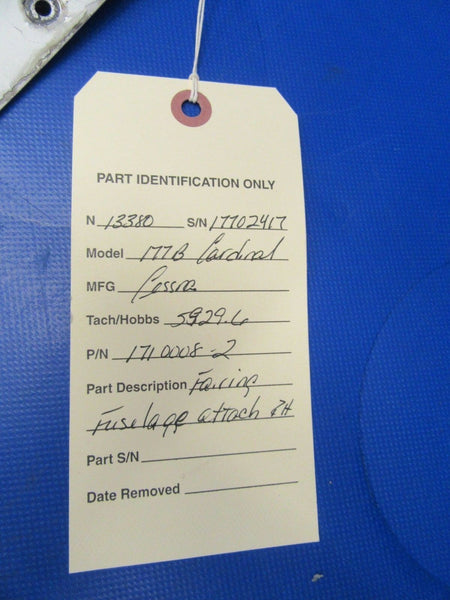 PART IDENTIFICATION ONLY
N 13380 S/N 17702417
Model 177B Cardinal
MFG Cessna
Tach/Hobbs 5929.6
P/N 1710008-2
Part Description Fairing
Fuselage attach RH
Part S/N
Date Removed